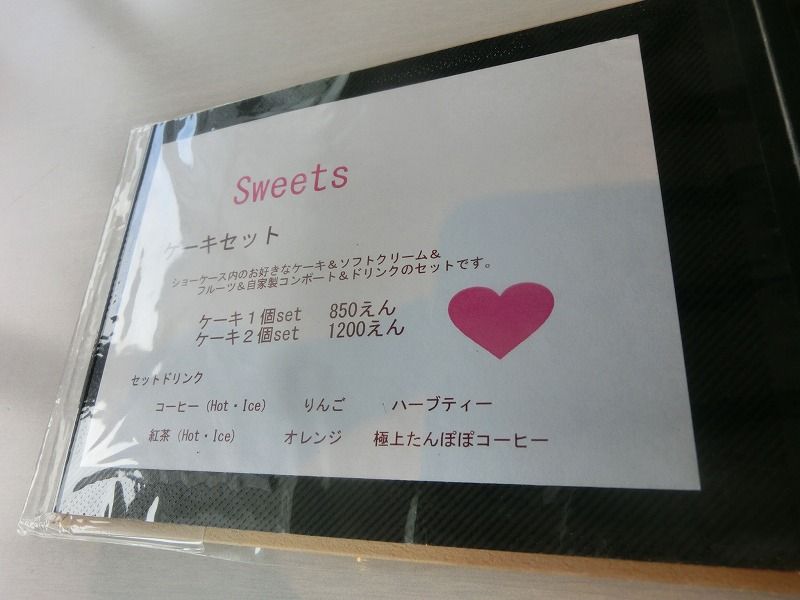 Sweets
ケーキセット
ショーケース内のお好きなケーキ＆ソフトクリーム＆
フルーツ＆自家製コンポート＆ドリンクのセットです。
ケーキ１個set 850えん
ケーキ２個set 1200えん
セットドリンク
コーヒー（Hot・Ice） りんご ハーブティー
紅茶（Hot・Ice） オレンジ 極上たんぽぽコーヒー